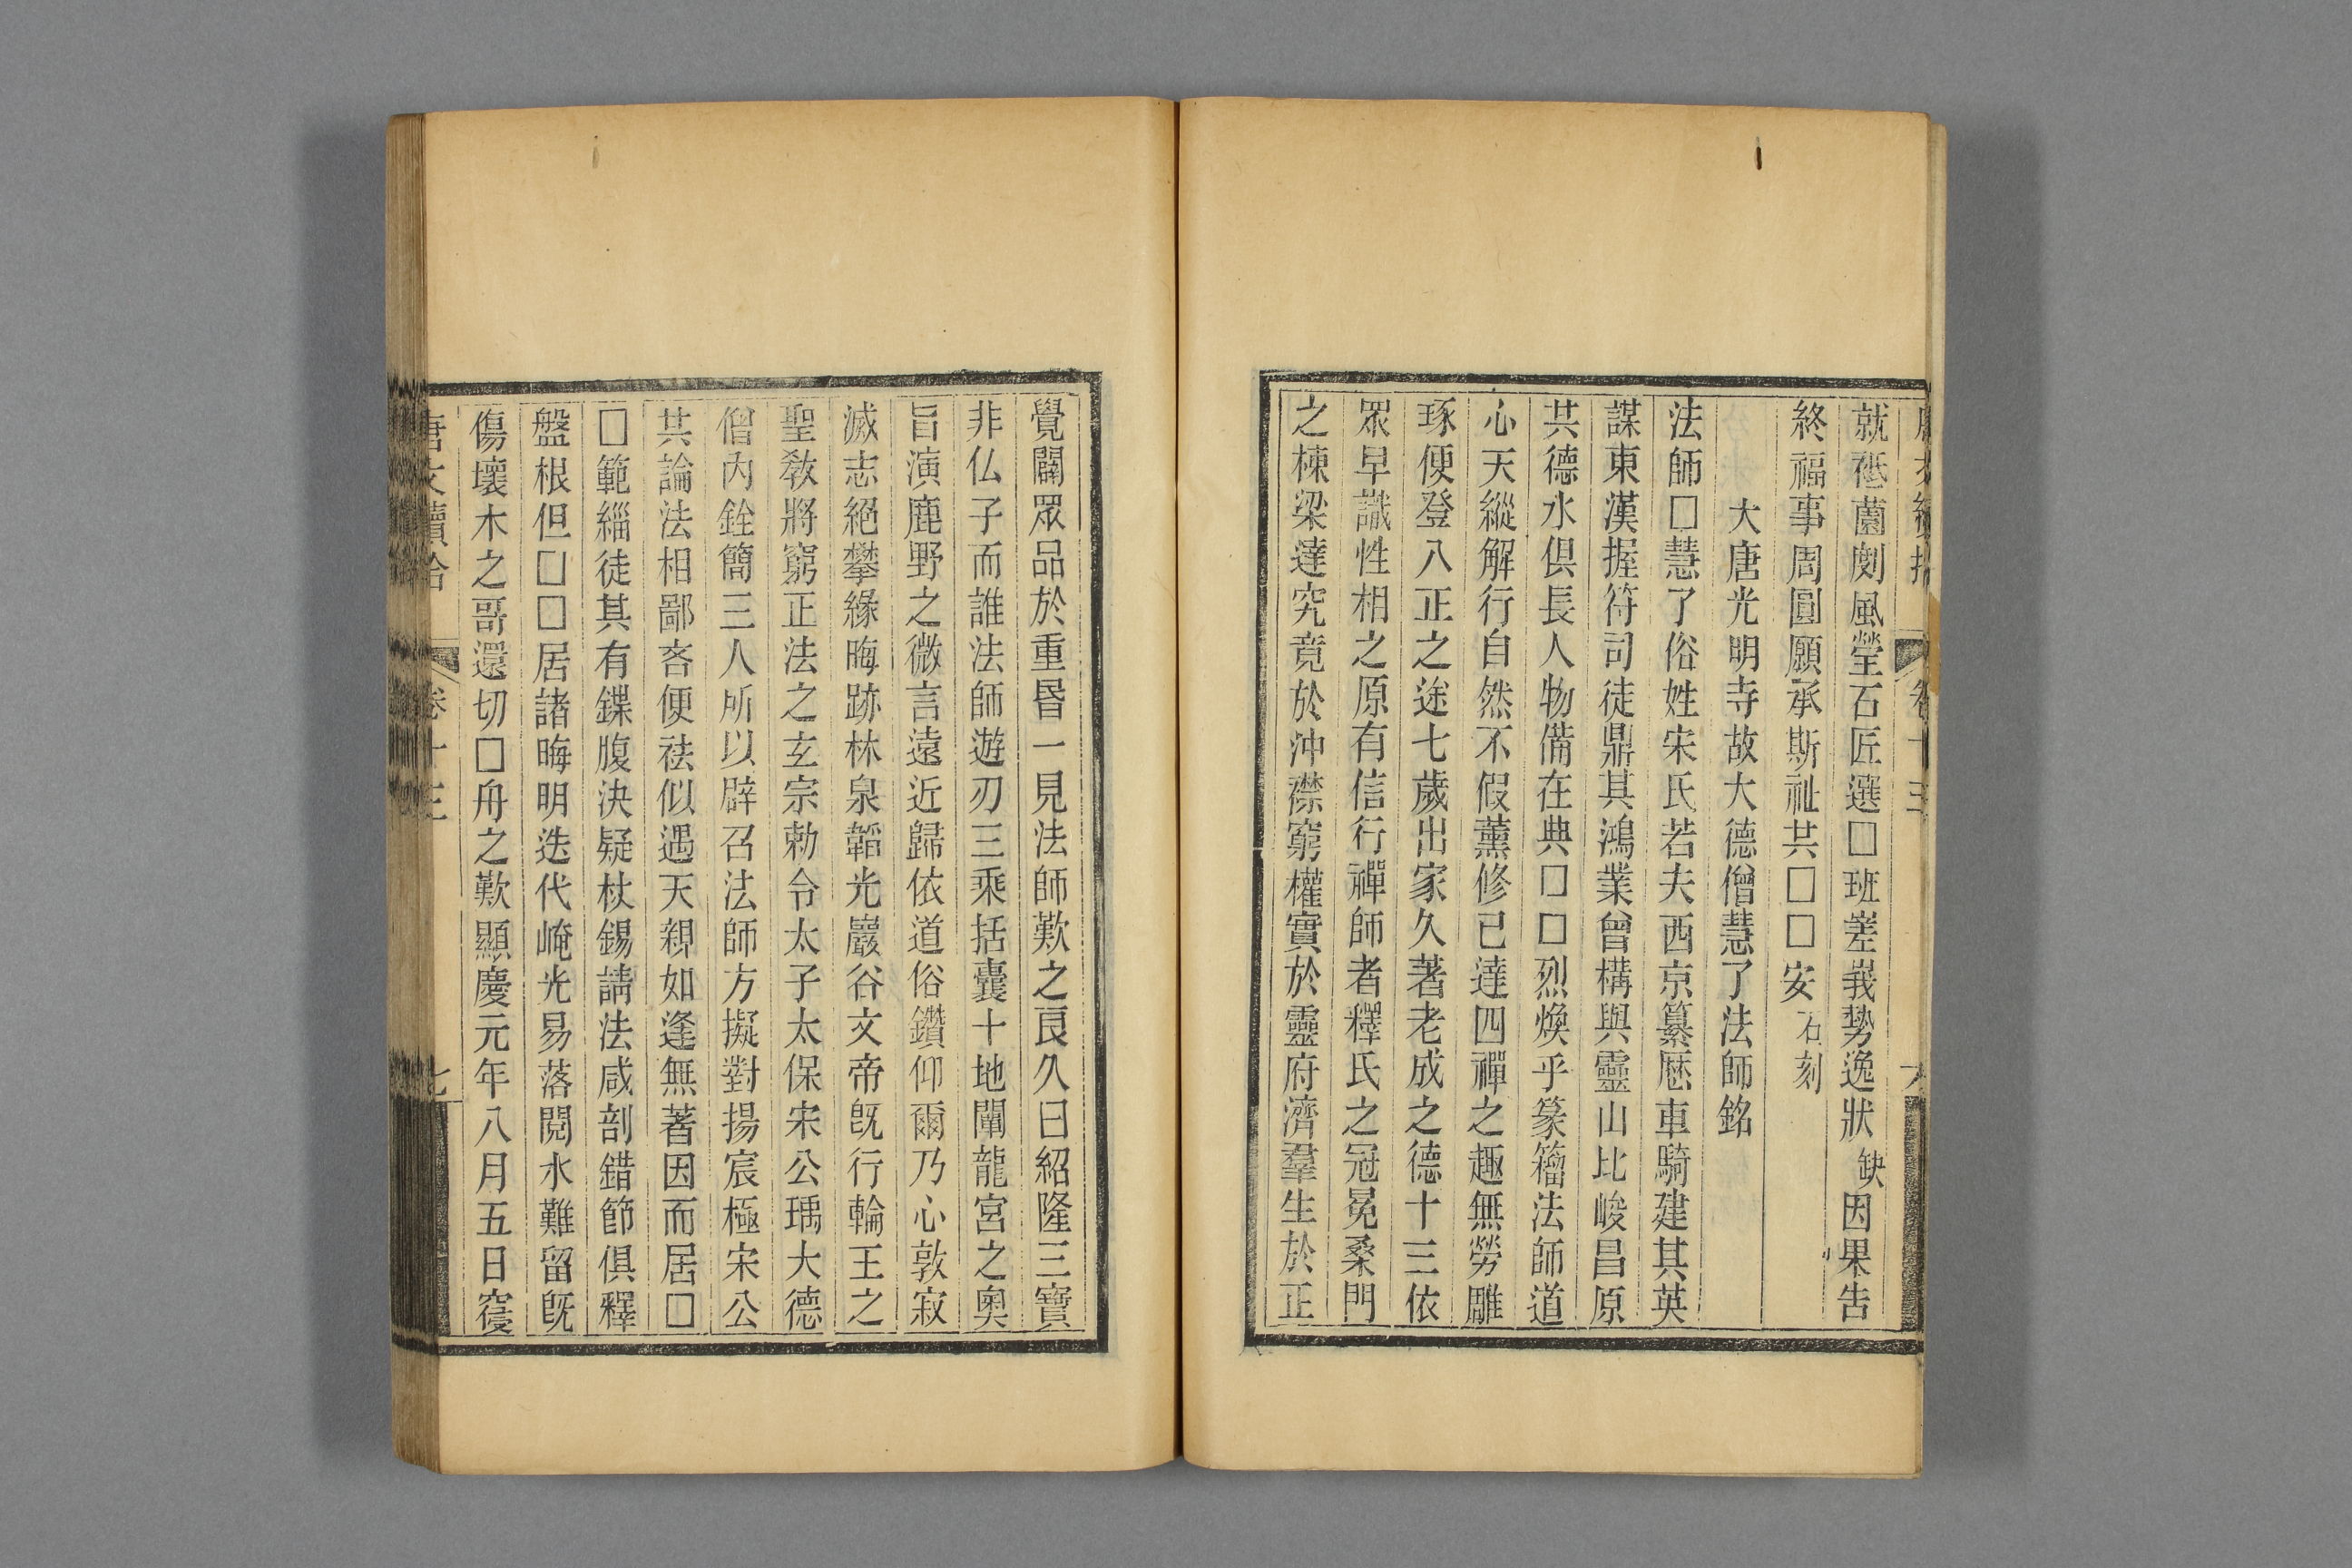 就祗薗剡風瑩石匠選□班嵳峩勢逸狀缺因果吿
終福事周圓願承斯祉共□□安石刻
大唐光明寺故大德僧慧了法師銘
法師□慧了俗姓宋氏若夫西京纂厯車騎建其英
謀東漢握符司徒鼎其鴻業曾構與靈山比峻昌原
共德水俱長人物備在典□□烈煥乎篆籀法師道
心天縱解行自然不假薰修已達四禪之趣無勞雕
琢便登八正之途七歲出家久著老成之德十三依
眾早識性相之原有信行禪師者釋氏之冠冕桑門
之棟梁達究竟於沖襟窮權實於靈府濟羣生於正
覺闢眾品於重昬一見法師歎之良久曰紹隆三寶
非仏子而誰法師遊刃三乘括囊十地闡龍宮之奧
旨演鹿野之微言遠近歸依道俗鑽仰爾乃心敦寂
滅志絕攀緣晦跡林泉韜光巖谷文帝既行輪王之
聖敎將窮正法之玄宗勅令太子太保宋公瑀大德
僧內銓簡三人所以辟召法師方擬對揚宸極宋公
其論法相鄙吝便祛似遇天親如逢無著因而居□
□範緇徒其有鍱腹決疑杖錫請法咸剖錯節俱釋
盤根但□□居諸晦明迭代崦光易落閱水難留旣
傷壞木之哥還切□舟之歎顯慶元年八月五日寑
唐文續拾
卷十三
七